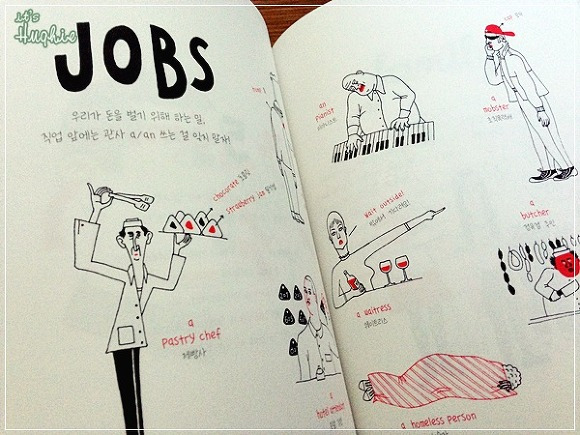 it's
Hughie
JOBS
우리가 돈을 벌기 위해 하는 일,
직업 앞에는 관사 a/an 쓰는 걸 잊지 말자!
chocolate 초콜릿
strawberry jam 딸기잼
a
pastry chef
제빵사
a
an
pianist
피아니스트
wait outside!
밖에서 기다려요!
a waitress
웨이트리스
a homeless person
a
mobster
조직폭력배
a
butcher
정육점 주인